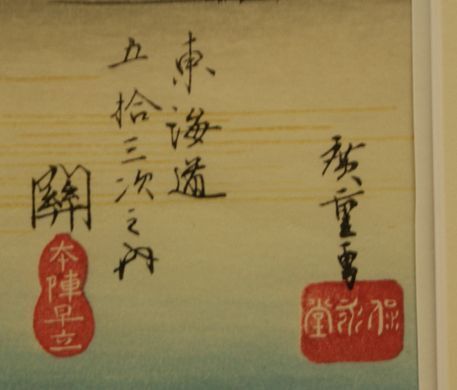 東海道
五拾三次之内
關
本陣早立
廣重画
保永堂